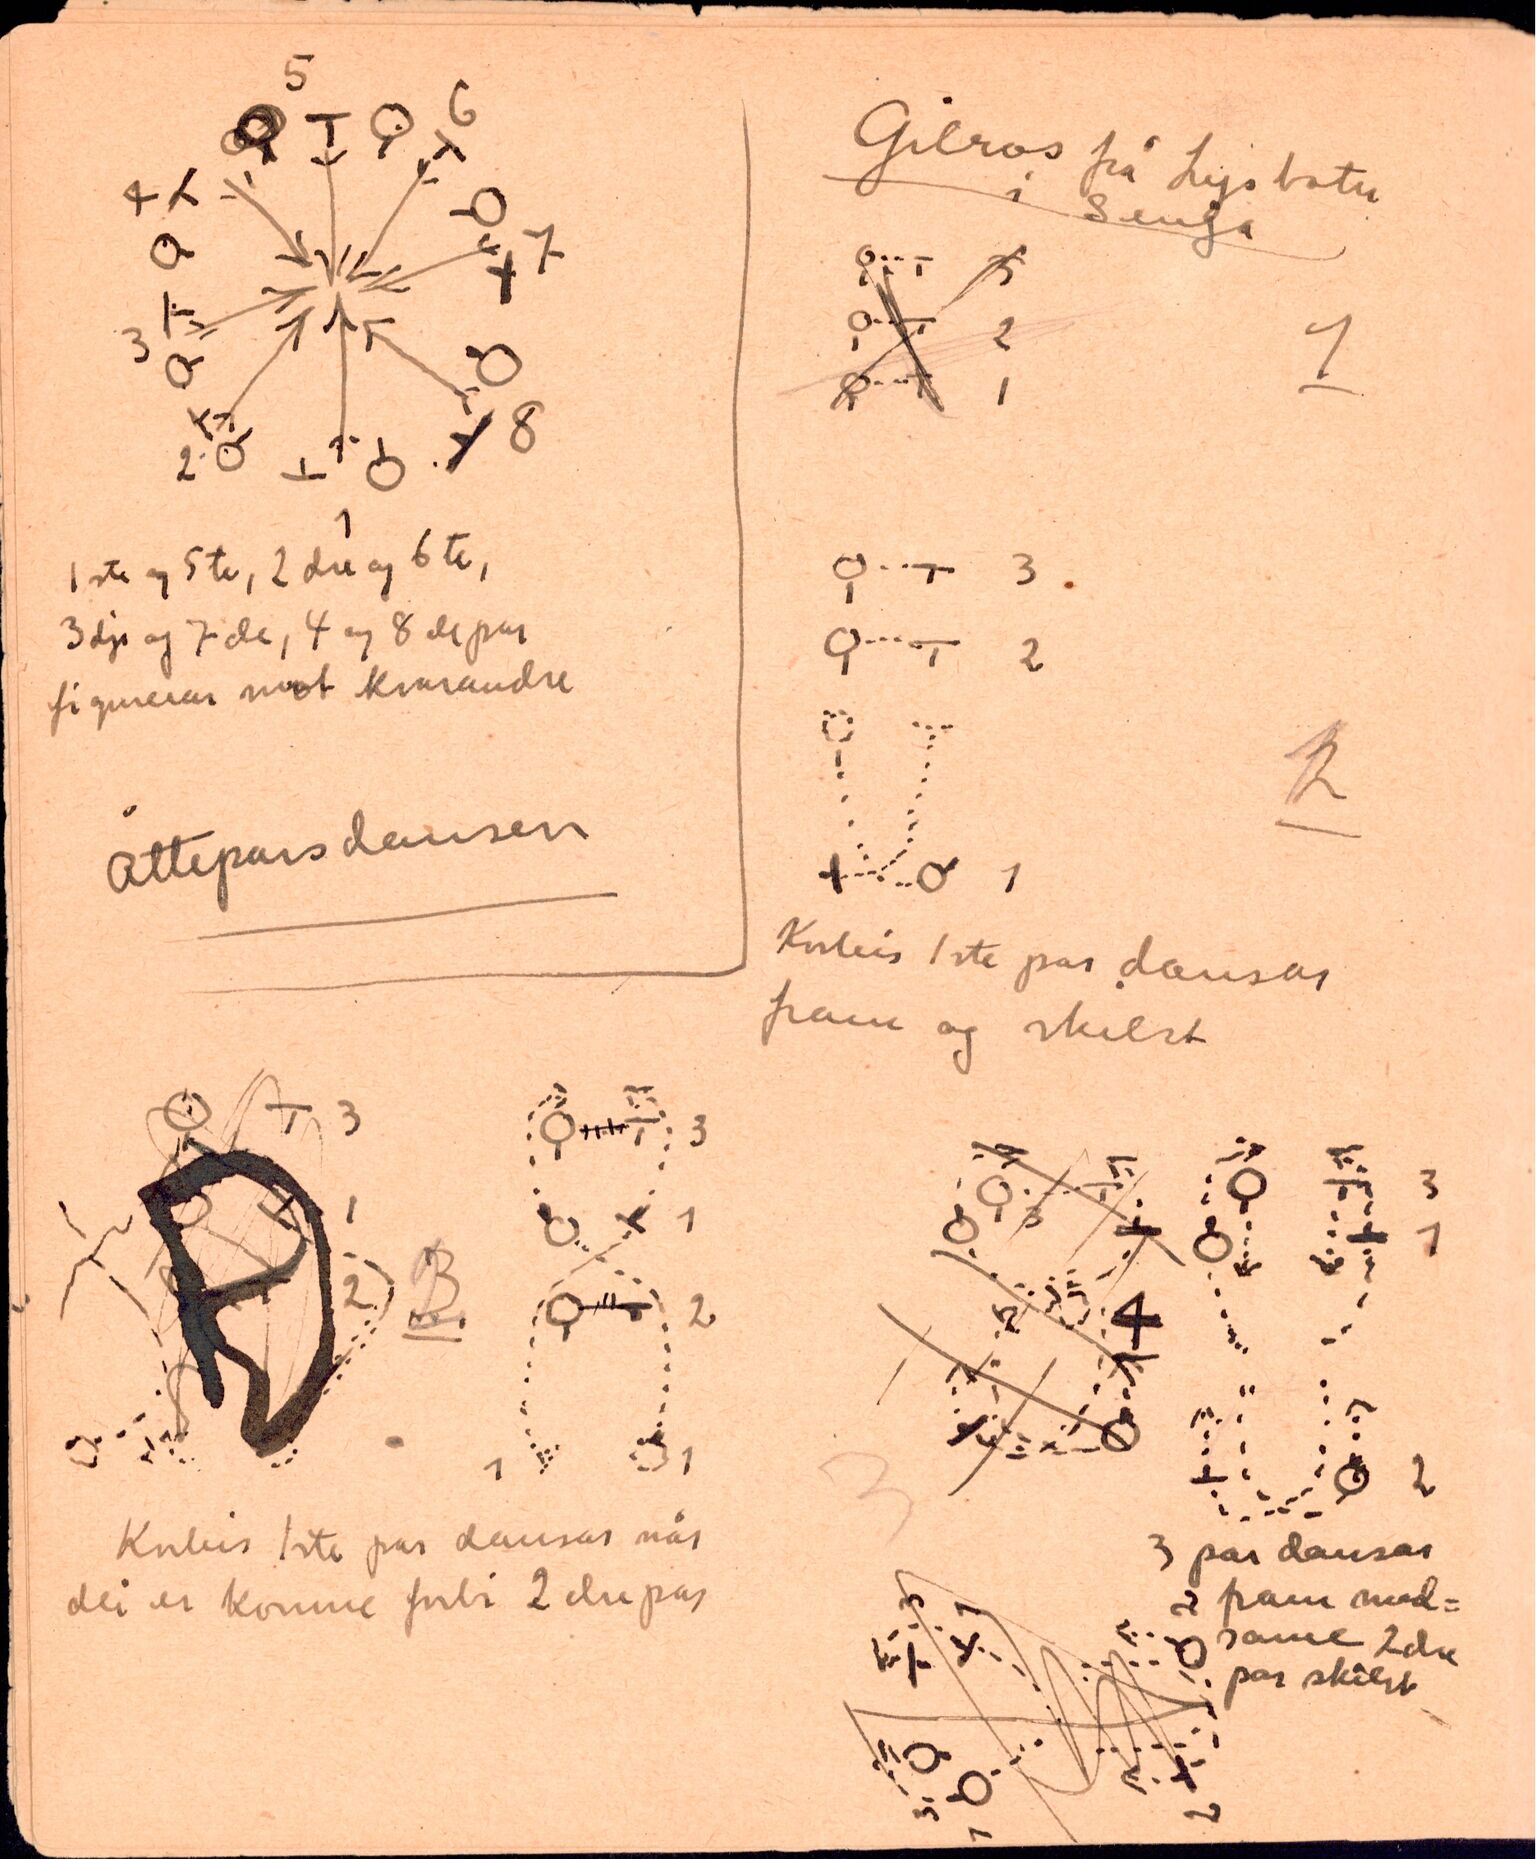 5
6
4
7
3
8
2
1
1ste og 5te, 2dre og 6te,
3dje og 7de, 4 og 8de par
figurerar mot kvarandre
Åtteparsdansen
Gilros frå
i Senja
3
2
1
1
3
2
2
1
1ste par dansar
fram og skilst
3
1
2
3
1
2
1
1
1ste par dansar når
dei er komne forbi 2dre par
3
1
4
2
3
3 par dansar
fram med=
same 2dre
par skilst
3
1
2
2
3
1